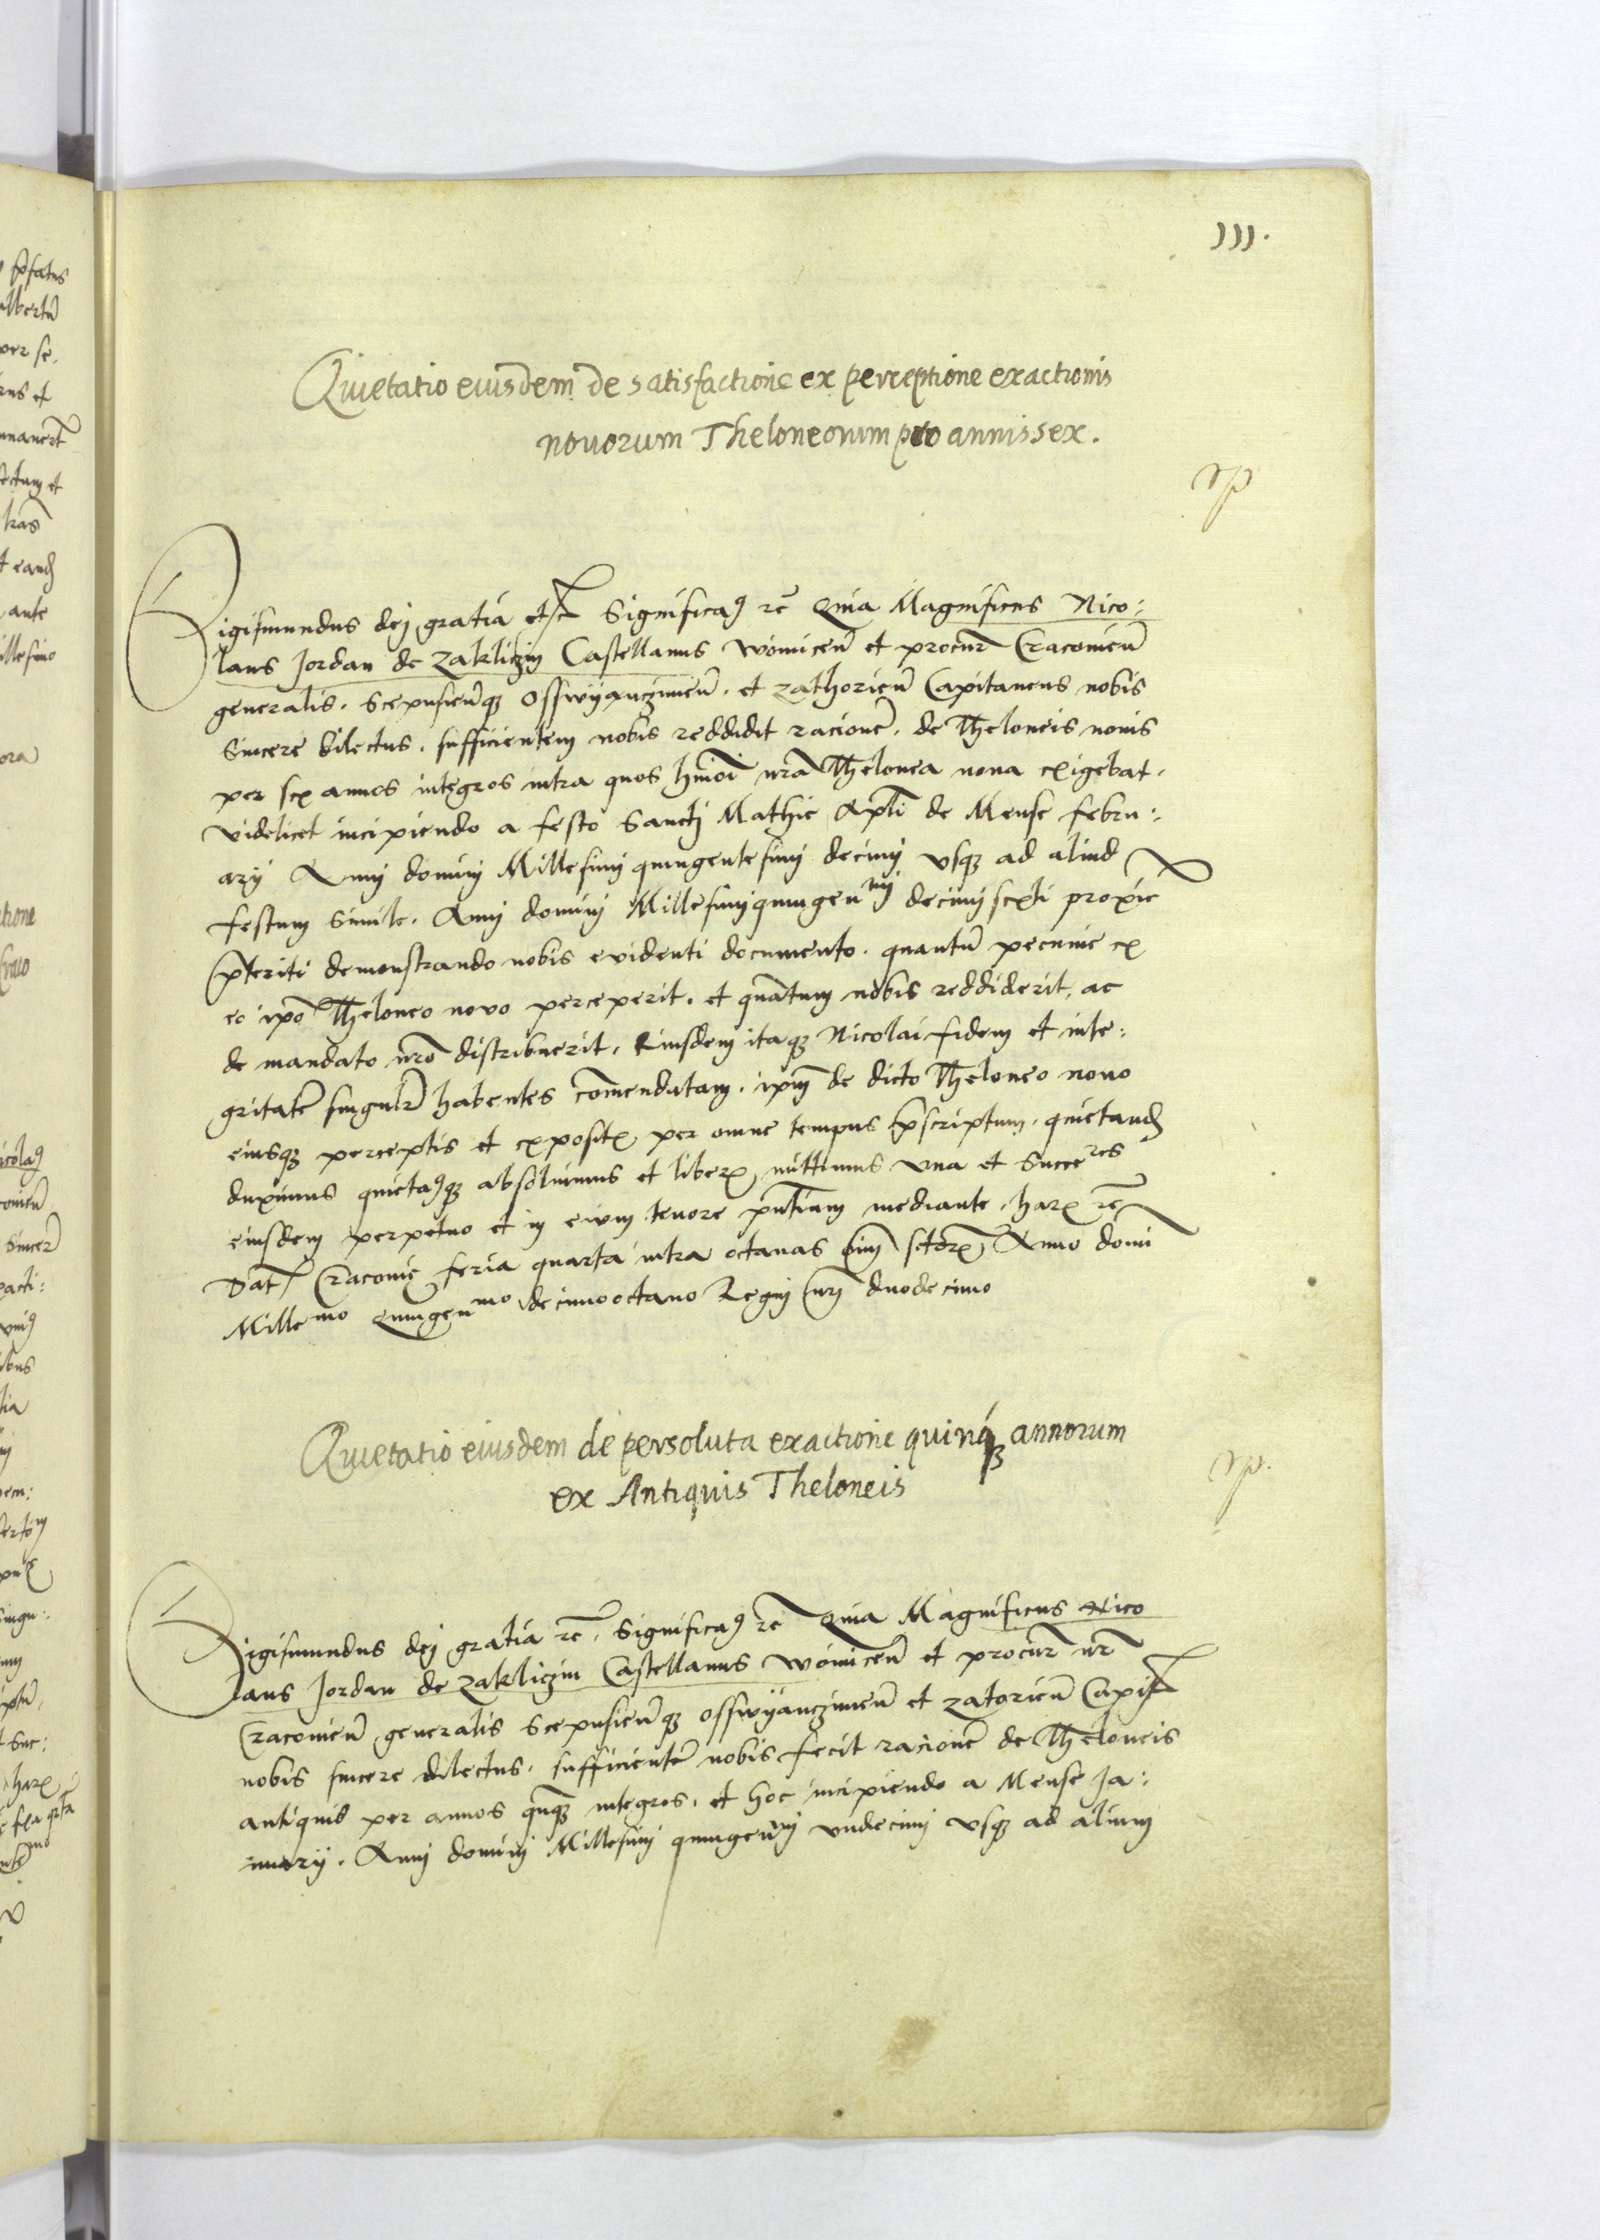 111.
Quietatio eiusdem de satisfactione ex perceptione exactionis
novorum Theloneorum pro annis sex.
Sigismundus dej gratia etc Significaꝯ rc̄ Quia Magnificus Nico:
laus Jordan de Zakliczin Castellanus Woiniceñ et procur̄ Cracovieñ
generalis. Scepusieñqꝫ Osswÿanczimeñ. et Zathorieñ Capitaneus nobis
Sincere dilectus. sufficientem nobis reddidit racionē. de Theloneis novis
per sex annos integros intra quos hmōi nr̄a Thelonea nova exigebat.
videlicet incipiendo a festo Sanctj Mathie Apl̄i de Mense Febru:
arÿ Annj dominj Millesimj quingentesimj decimj usqꝫ ad aliud
festum Simile. Annj dominj Millesimj quingenᵐʲ decimj sexti proxīe
p̄teriti demonstrando nobis evidenti documento. quantū pecunie ex
eo ip̄o Theloneo novo perceperit. et quātum nobis reddiderit, ac
de mandato nr̄o distribuerit. Eiusdem itaqꝫ Nicolai fidem et inte:
gritatē singulr̄ habentes com̄endatam. ip̄m de dicto Theloneo novo
eiusqꝫ perceptis et expositꝭ per omne tempus p̄scriptum. quietand̄
duximus quietaꝯqꝫ absolvimus et liberꝝ mittimus una et Succeʳᵉˢ
eiusdem perpetuo et in evum tenore pn̄tium mediante. harꝝ rc̄
Dat̄ Cracovie feria quarta intra octavas om̄ sctorꝝ Anno domī
Milleᵐᵒ Quingenᵐᵒ decimooctavo Regnj nr̄j duodecimo
Quietatio eiusdem de persoluta exactione quinqꝫ annorum
ex Antiquis Theloneis
Sigismundus dej gratia rc̄. Significaꝯ rc̄ Quia Magnificus Nico
laus Jordan de Zakliczin Castellanus Woiniceñ et procur̄ nr̄
Cracovieñ generalis Scepusieñqꝫ Osswÿanczimeñ et Zatorieñ Capit̄
nobis sincere dilectus. sufficientē nobis fecit racionē de Theloneis
antiquis per annos qn̄qꝫ integros. et hoc incipiendo a Mense Ja:
nuarÿ. Annj dominj Millesimj quingenᵐʲ undecimj usqꝫ ad alium